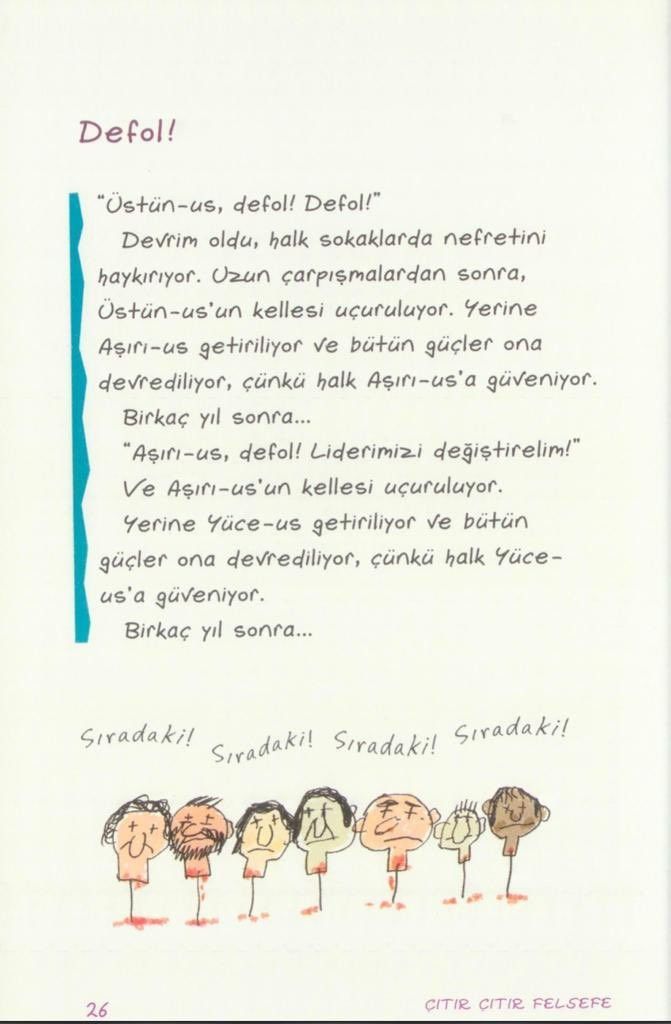 Defol!
"Üstün-us, defol! Defol!"
Devrim oldu, halk sokaklarda nefretini
haykırıyor. Uzun çarpışmalardan sonra,
Üstün-us'un kellesi uçuruluyor. Yerine
Aşırı-us getiriliyor ve bütün güçler ona
devrediliyor, çünkü halk Aşırı-us'a güveniyor.
Birkaç yıl sonra...
"Aşırı-us, defol! Liderimizi değiştirelim!"
Ve Aşırı-us'un kellesi uçuruluyor.
Yerine Yüce-us getiriliyor ve bütün
güçler ona devrediliyor, çünkü halk Yüce-
us'a güveniyor.
Birkaç yıl sonra...
Sıradaki! Sıradaki! Sıradaki! Sıradaki!
26 ÇITIR ÇITIR FELSEFE